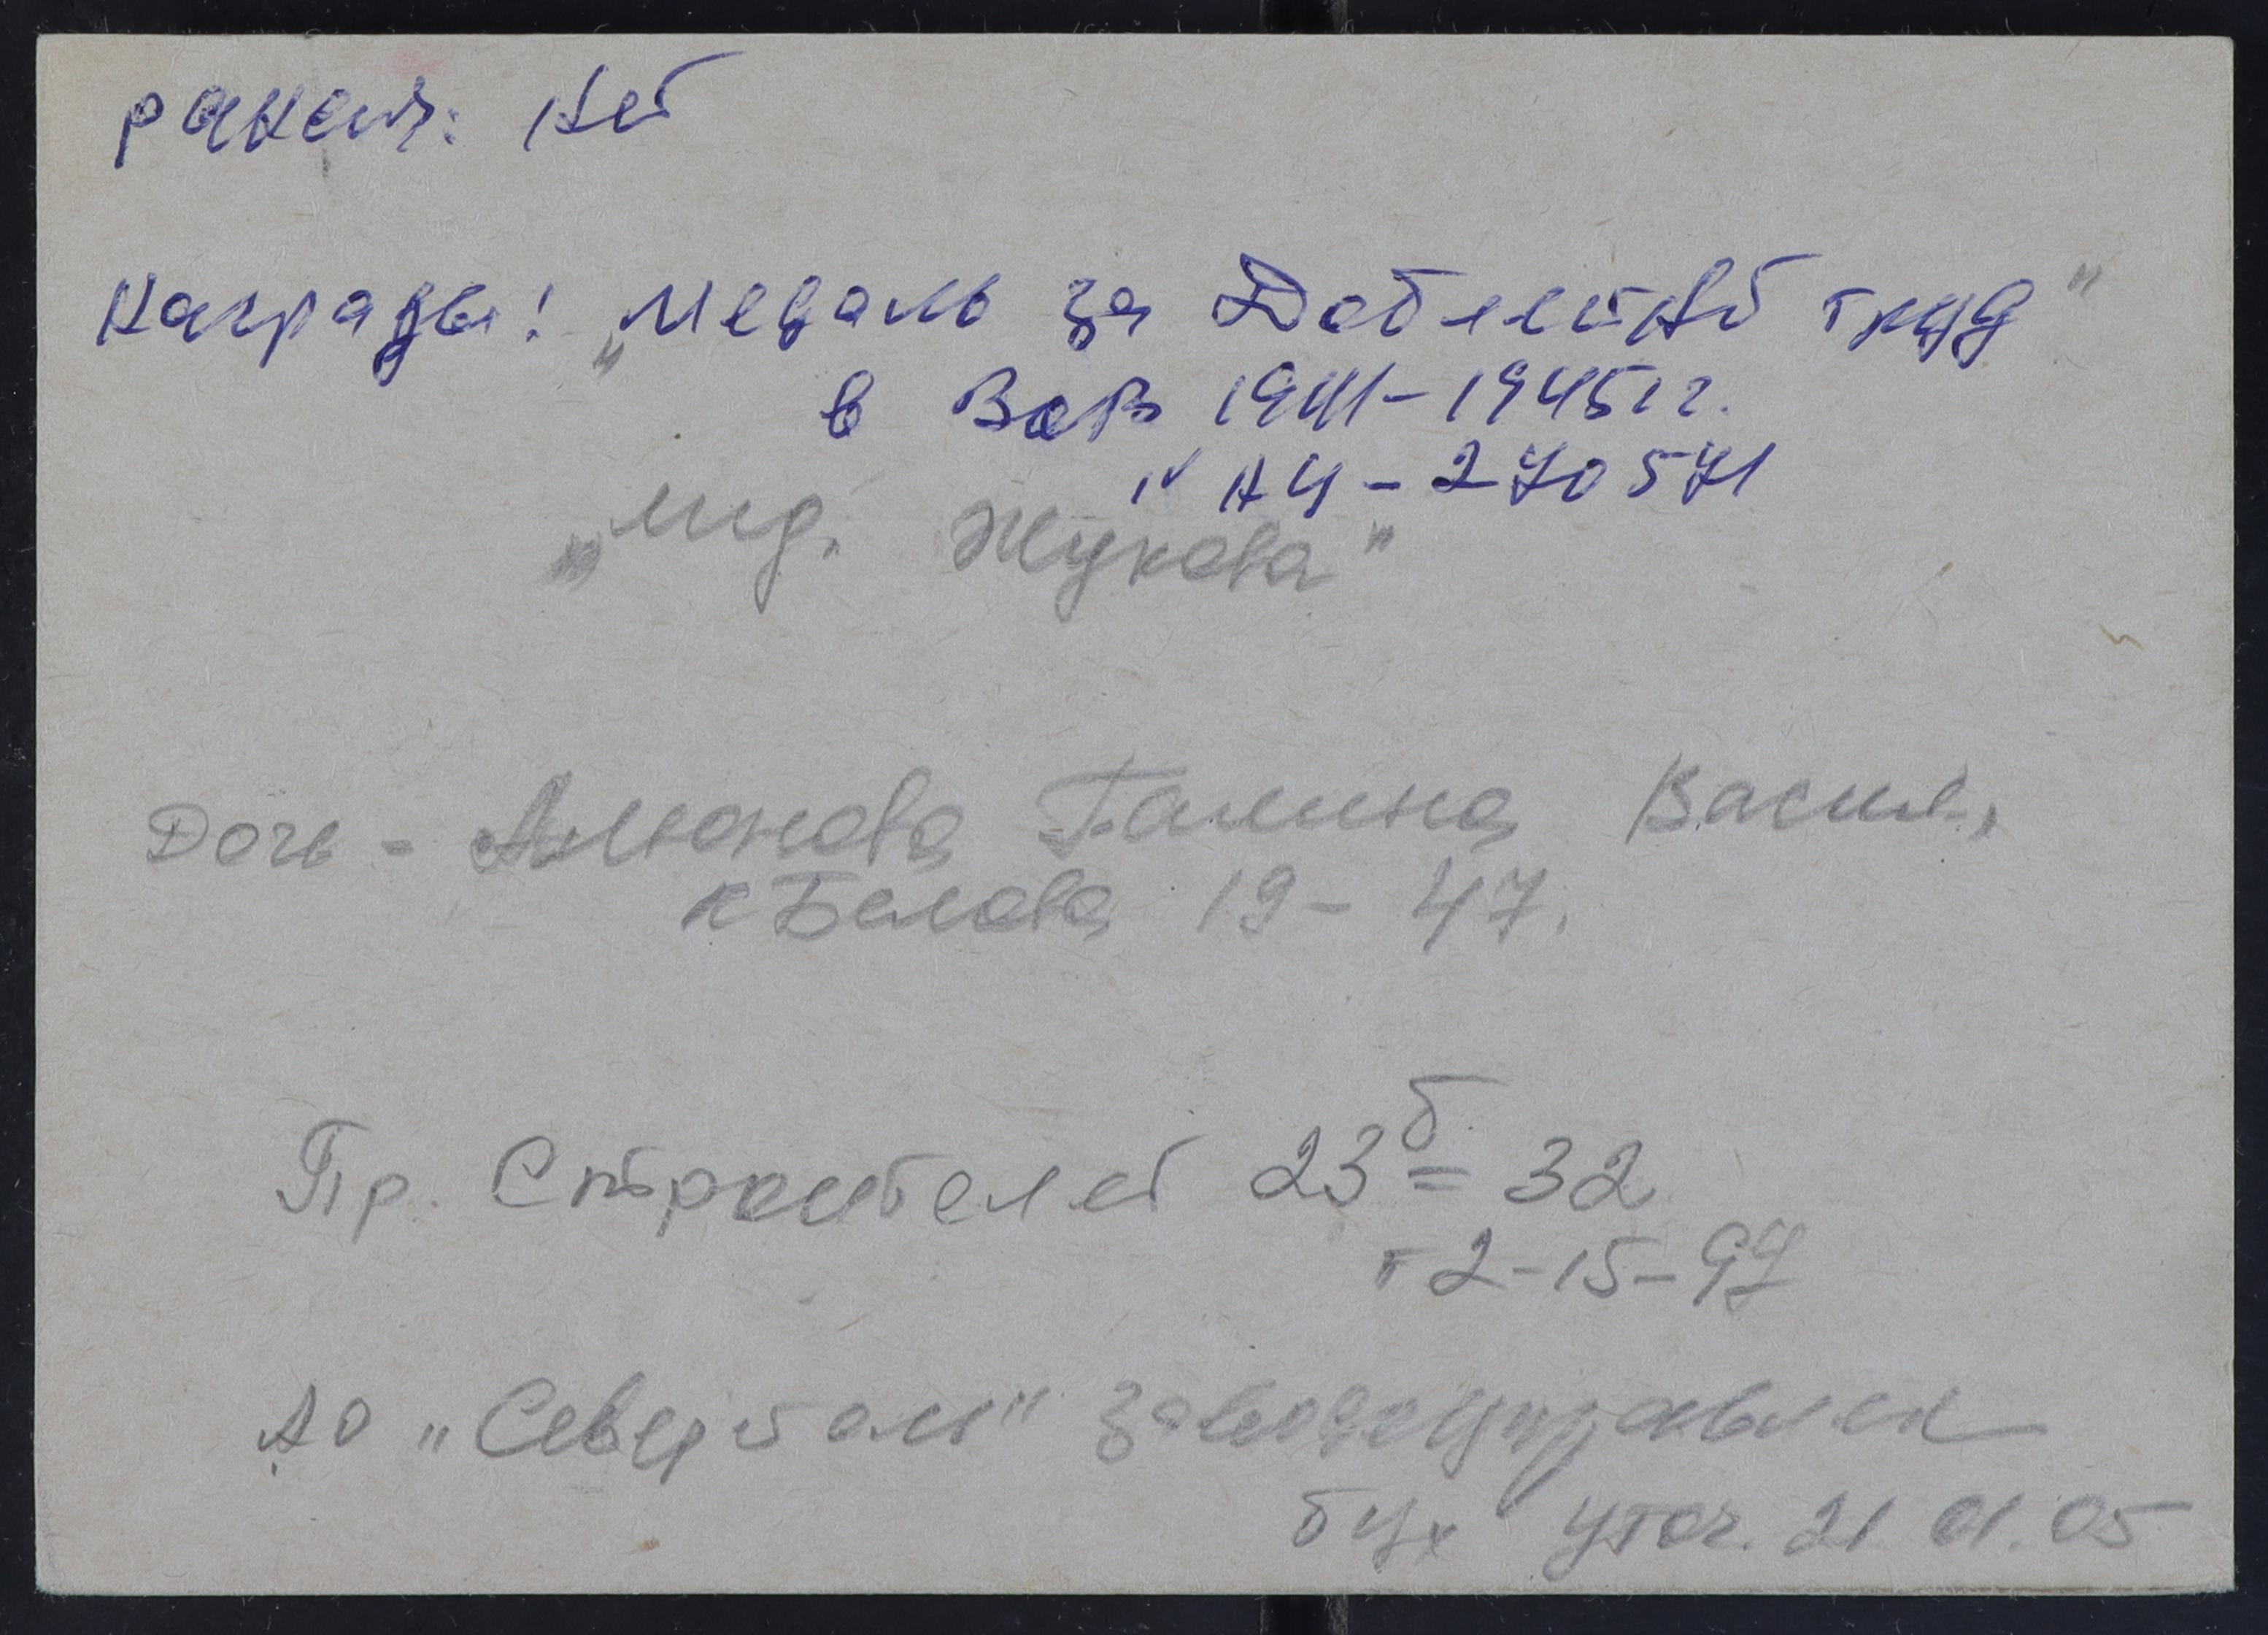 ранен: нет
награды: „Медаль за Доблестн труд"
в ВОВ 1941-1945 гг.
№ АЧ - 270571
„мед. Жукова"
Дочь - Галина Васил.
к Белова 19 - 47.
Пр. Строителей 23б = 32
т 2-15-97
АО „Северсталь" заводоуправлен
бух уточ. 21.01.05